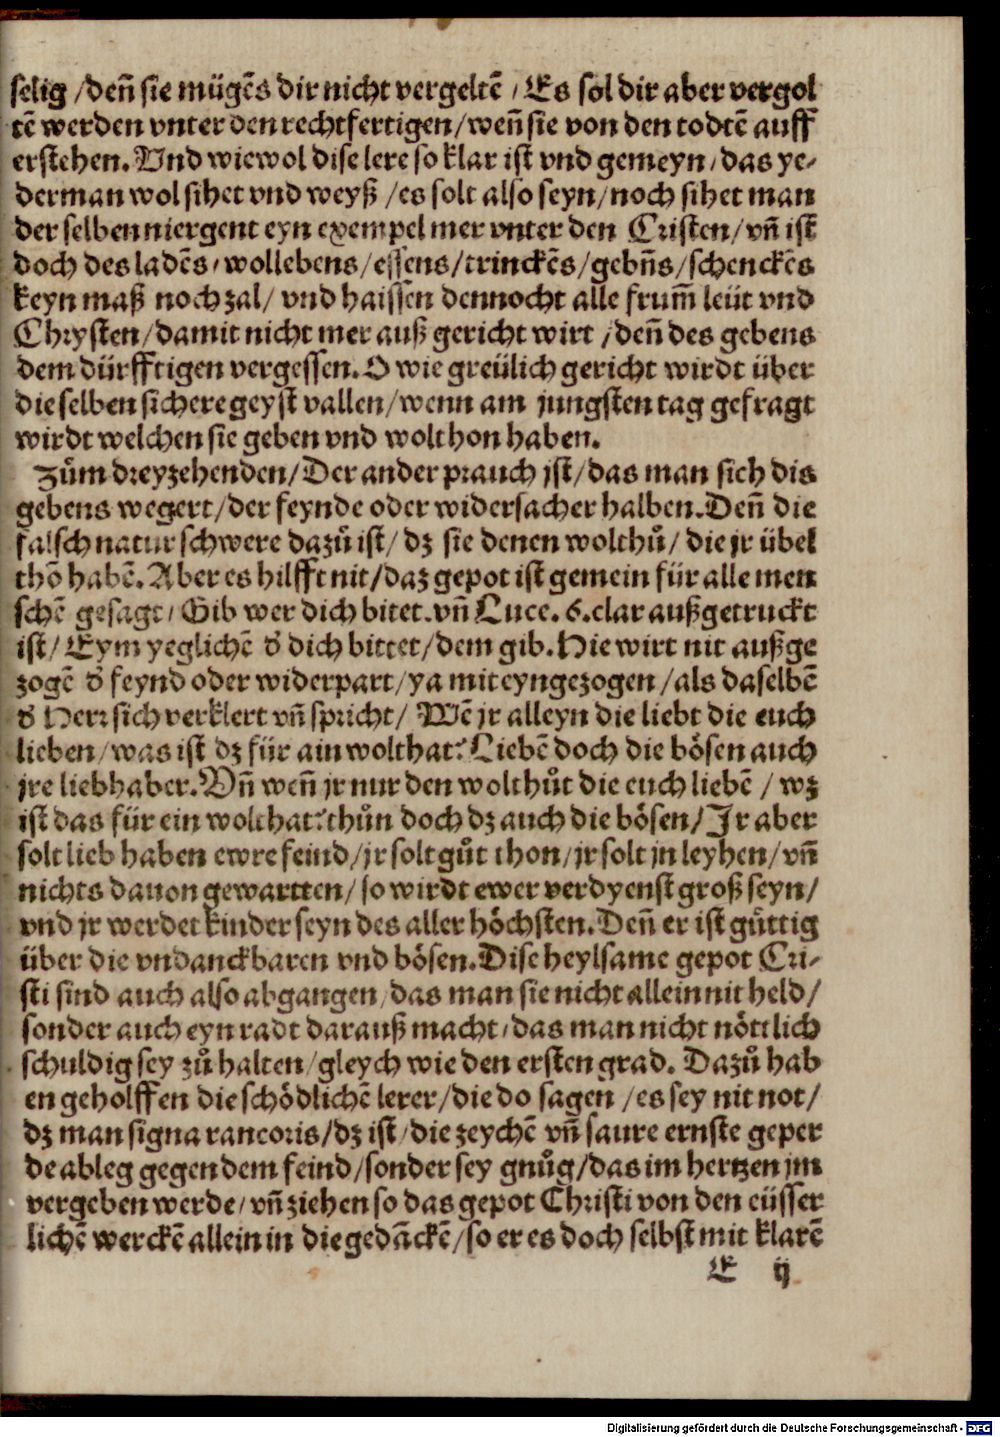 selig /deñ sie mügēs dir nicht vergeltē / Es sol dir aber vergol
tē werden vnter den rechtfertigen/weñ sie von den todtē auff
erstehen. Vnd wiewol dise lere so klar ist vnd gemeyn/das ye-
derman wol sihet vnd weyß /es solt also seyn/noch sihet man
der selben niergent eyn exempel mer vnter den Cristen/vñ ist
doch des ladēs/wollebens/essens/trinckēs/gebñs/schenckēs
keyn maß noch zal/ vnd haissen dennocht alle frum̃ leüt vnd
Chrysten/damit nicht mer auß gericht wirt /deñ des gebens
dem dürfftigen vergessen. O wie greülich gericht wirdt über
die selben sichere geyst vallen/wenn am jungsten tag gefragt
wirdt welchen sie geben vnd wolthon haben.
Zům dreyzehenden/Der ander prauch jst/das man sich dis
gebens wegert/der feynde oder widersacher halben. Deñ die
falsch natur schwere dazů ist/ dz sie denen wolthů/ die jr übel
thō habē. Aber es hilfft nit/daz gepot ist gemein für alle men
schē gesagt/ Gib wer dich bitet. vñ Luce. 6. clar außgetruckt
ist/ Eym yeglichē d̕ dich bittet/dem gib. Hie wirt nit außge
zogē d̕ feynd oder widerpart/ya mit eyngezogen/als daselbē
d̕ Herr sich verklert vñ spricht/ Wē jr alleyn die liebt die euch
lieben/was ist dz für ain wolthat? Liebē doch die bösen auch
jre liebhaber. Vñ weñ jr nur den wolthůt die euch liebē / wz
ist das für ein wolthat? thůn doch dz auch die bösen/ Jr aber
solt lieb haben ewre feind/jr solt gůt thon/jr solt jn leyhen/vñ
nichts dauon gewartten/so wirdt ewer verdyenst groß seyn/
vnd jr werdet kinder seyn des aller höchsten. Deñ er ist gůttig
über die vndanckbaren vnd bösen. Dise heylsame gepot Cri-
sti sind auch also abgangen/das man sie nicht allein nit held/
sonder auch eyn radt darauß macht/das man nicht nöttlich
schuldig sey zů halten/gleych wie den ersten grad. Dazů hab
en geholffen die schödlichē lerer/die do sagen /es sey nit not/
dz man signa rancoris/dz ist/die zeychē vñ saure ernste geper
de ableg gegen dem feind/sonder sey gnůg/das im hertzen jm
vergeben werde/vñ ziehen so das gepot Christi von den eüsser
lichē werckē allein in die gedāckē/so er es doch selbst mit klarē
E ij
Digitalisierung gefördert durch die Deutsche Forschungsgemeinschaft - DFG